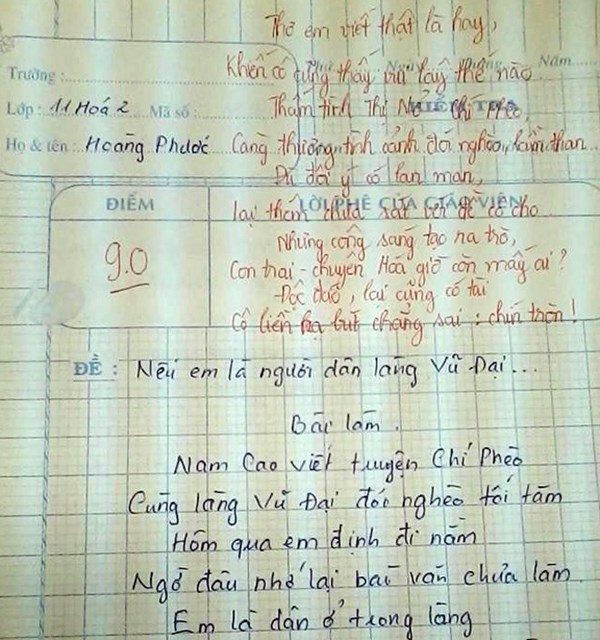 Thơ em viết thật là hay,
Khiến cô cũng thấy vui lây thế nào
Năm
Trường :
Thấm tình Thị Nở Chí Phèo,
Lớp : 11 Hoá 2 Mã số :
Họ & tên : Hoàng Phước
Càng thương tình cảnh đói nghèo, lầm than
Dù đôi ý có lan man,
ĐIỂM
LỜI PHÊ CỦA GIÁO VIÊN
lại thêm chưa sát với đề cô cho
Nhưng công sáng tạo ra trò,
9.0
Con trai - chuyên Hoá giờ còn mấy ai?
Độc đáo, lại cũng có tài
Cô liền hạ bút chẳng sai : chín tròn!
ĐỀ : Nếu em là người dân làng Vũ Đại...
Bài làm.
Nam Cao viết truyện Chí Phèo
Cùng làng Vũ Đại đói nghèo tối tăm
Hôm qua em định đi nằm
Ngờ đâu nhớ lại bài văn chưa làm.
Em là dân ở trong làng